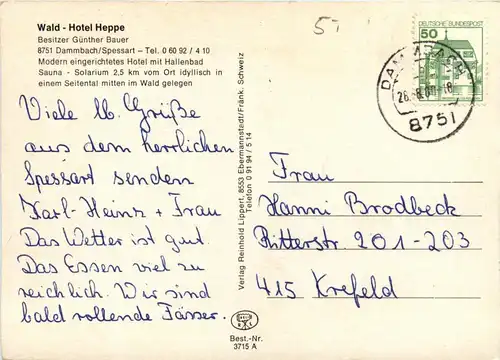 Wald - Hotel Heppe
Besitzer Günther Bauer
8751 Dammbach/Spessart – Tel. 0 60 92 / 4 10
Modern eingerichtetes Hotel mit Hallenbad
Sauna - Solarium 2,5 km vom Ort idyllisch in
einem Seitental mitten im Wald gelegen
5,-
DEUTSCHE BUNDESPOST
50
DAMMBACH
8751
Viele lb. Grüße
aus dem herrlichen
Spessart senden
Karl-Heinz + Frau
Das Wetter ist gut.
Das Essen viel zu
reichlich. Wir sind
bald rollende Fässer.
Verlag Reinhold Lippert, 8553 Ebermannstadt/Fränk. Schweiz
Telefon 0 91 94 / 5 14
Frau
Hanni Brodbeck
Ritterstr. 201-203
415 Krefeld
Best.-Nr.
3715 A